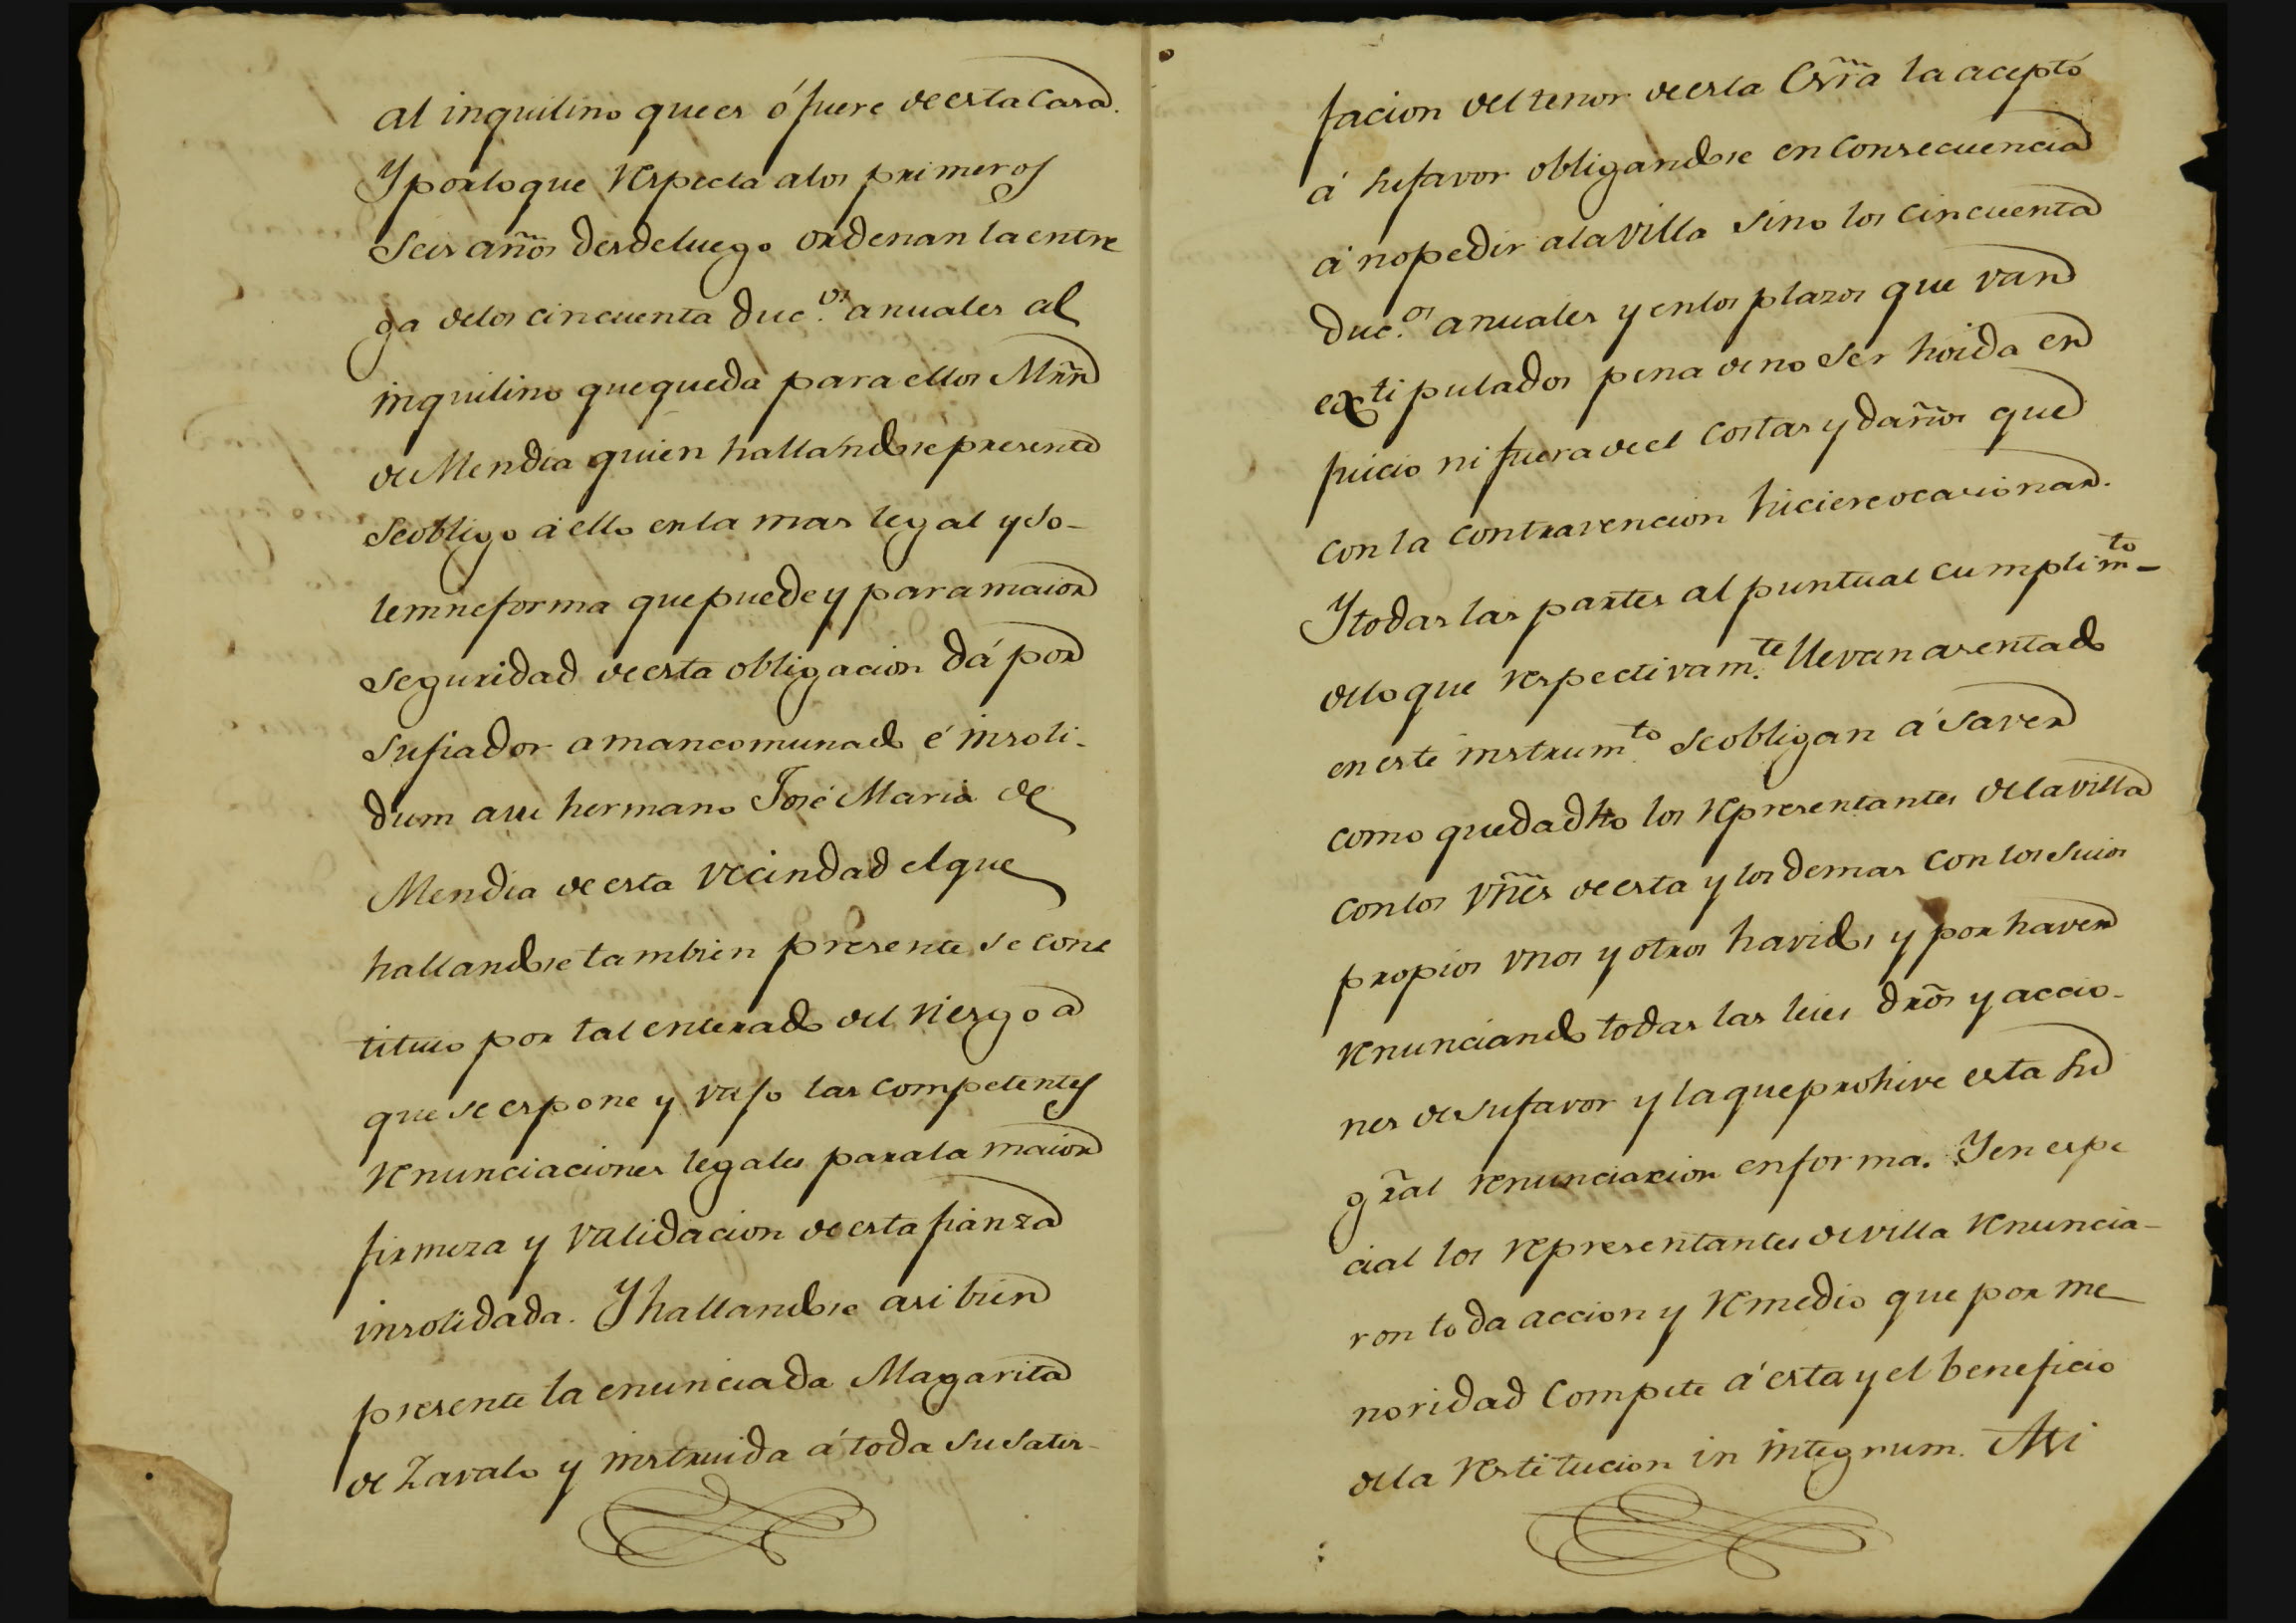 al inquilino que es ó fuere de esta Casa.
Y por lo que respecta a los primeros
seis años desde luego ordenan la entre
ga de los cincuenta duc.os anuales al
inquilino que queda para ellos Mrñ
de Mendia quien hallandose presente
se obligo á ello en la mas legal y so-
lemne forma que puede y para maior
seguridad de esta obligacion dá por
su fiador a mancomunado é insoli-
dum a su hermano José Maria de
Mendia de esta vecindad el que
hallandose tambien presente se cons
tituio por tal enterado del riesgo a
que se espone y vajo las competentes
renunciaciones legales para la maior
firmeza y validacion de esta fianza
insolidada. Y hallandose asi bien
presente la enunciada Magarita
de Zavalo y instruida á toda su satis-
facion del tenor de esta Esrña la acepto
á su favor obligandose en consecuencia
á no pedir a la villa sino los cincuenta
duc.os anuales y en los plazos que van
extipulados pena de no ser hoida en
juicio ni fuera de el costas y daños que
con la contravencion hiciere ocasionar.
Y todas las partes al puntual cumplim.to
de lo que respectivam.te llevan asentado
en este instrum.to se obligan á saver
como queda dho los representantes de la villa
con los vñes de esta y los demas con los suios
propios vnos y otros havidos y por haver
renunciando todas las leies drõs y accio-
nes de su favor y la que prohive esta su
grãl renunciacion en forma. Y en espe
cial los representantes de villa renuncia-
ron toda accion y remedio que por me
noridad compete á esta y el beneficio
de la restitucion in integrum. Asi